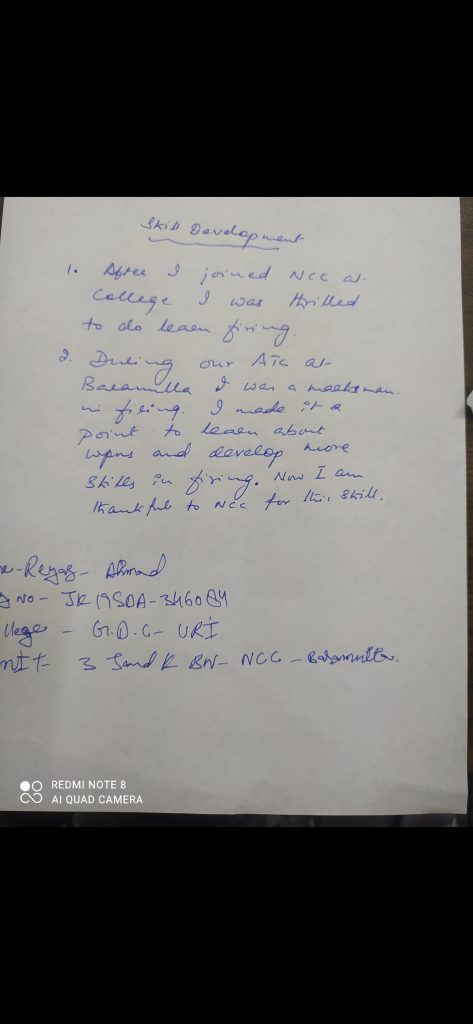 Skill Development
1. After I joined NCC at
College I was thrilled
to do learn firing.
2. During our ATC at
Baramulla I was a marksman.
in firing. I made it a
point to learn about
wpns and develop more
skills in firing. Now I am
thankful to NCC for this skill.
e - Reyaz - Ahmad
g no - JK19SDA-346084
llege - G.D.C - URI
nit - 3 J and K BN - NCC - Baramulla.
REDMI NOTE 8
AI QUAD CAMERA